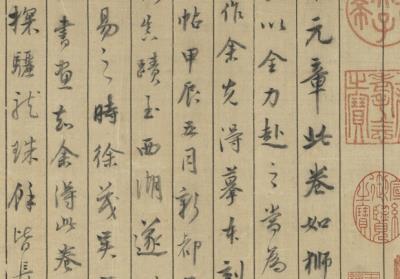 元章此卷如獅
以全力赴之當為
作余先得摹本刻
帖甲辰五月新都
真蹟至西湖遂
易之時徐茂吳
書畫知余得此卷
探驪龍珠餘皆長